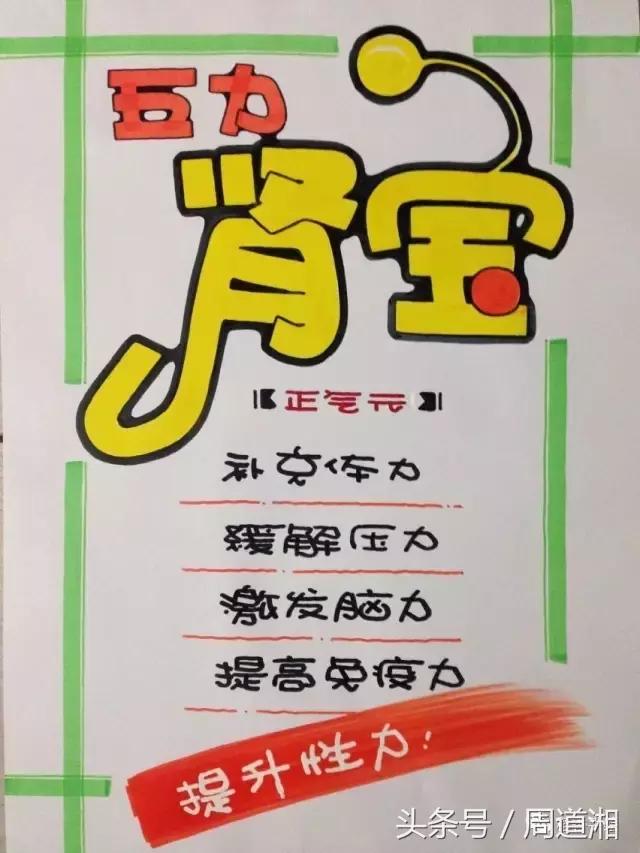 五力
肾宝
【正气元】
补充体力
缓解压力
激发脑力
提高免疫力
提升性力!
头条号 / 周道湘